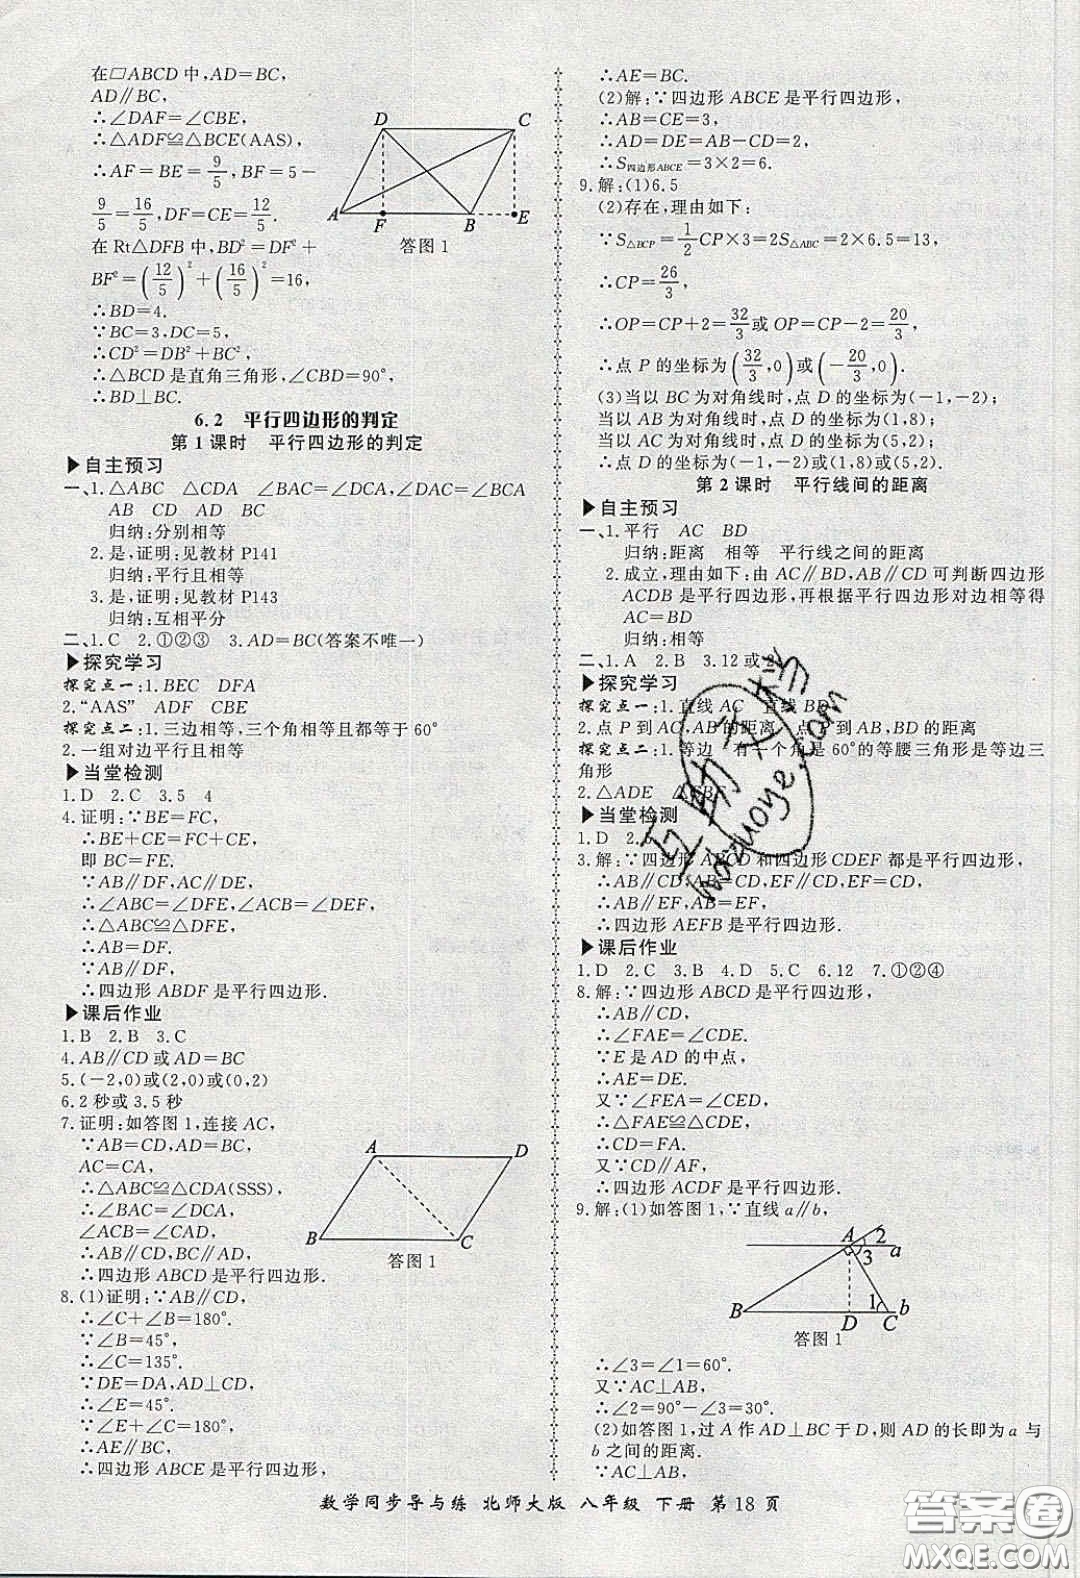 在▱ABCD中,AD=BC,
AD∥BC,
∴∠DAF=∠CBE,
∴△ADF≌△BCE(AAS)
∴AF=BE=9/5,BF=5-
9/5=16/5,DF=CE=12/5.
在Rt△DFB中,BD²=DF²+
BF²=(12/5)²+(16/5)²=16,
∴BD=4.
∵BC=3,DC=5,
∴CD²=DB²+BC²,
∴△BCD是直角三角形,∠CBD=90°,
∴BD⊥BC.
D C
A F B E
答图1
6.2 平行四边形的判定
第1课时 平行四边形的判定
▶自主预习
一、1.△ABC △CDA ∠BAC=∠DCA,∠DAC=∠BCA
AB CD AD BC
归纳:分别相等
2.是,证明:见教材P141
归纳:平行且相等
3.是,证明:见教材P143
归纳:互相平分
二、1.C 2.①②③ 3.AD=BC(答案不唯一)
▶探究学习
探究点一:1.BEC DFA
2.“AAS” ADF CBE
探究点二:1.三边相等,三个角相等且都等于60°
2.一组对边平行且相等
▶当堂检测
1.D 2.C 3.5 4
4.证明:∵BE=FC,
∴BE+CE=FC+CE,
即BC=FE.
∵AB∥DF,AC∥DE,
∴∠ABC=∠DFE,∠ACB=∠DEF,
∴△ABC≌△DFE,
∴AB=DF.
∵AB∥DF,
∴四边形ABDF是平行四边形.
▶课后作业
1.B 2.B 3.C
4.AB∥CD或AD=BC
5.(-2,0)或(2,0)或(0,2)
6.2秒或3.5秒
7.证明:如答图1,连接AC,
∵AB=CD,AD=BC,
AC=CA,
∴△ABC≌△CDA(SSS)
∴∠BAC=∠DCA,
∠ACB=∠CAD,
∴AB∥CD,BC∥AD,
∴四边形ABCD是平行四边形.
A D
B C
答图1
8.(1)证明:∵AB∥CD,
∴∠C+∠B=180°.
∵∠B=45°,
∴∠C=135°.
∵DE=DA,AD⊥CD,
∴∠E=45°.
∵∠E+∠C=180°,
∴AE∥BC,
∴四边形ABCE是平行四边形,
∴AE=BC.
(2)解:∵四边形ABCE是平行四边形,
∴AB=CE=3,
∴AD=DE=AB-CD=2,
∴S四边形ABCE=3×2=6.
9.解:(1)6.5
(2)存在,理由如下:
∵S△BCP=1/2CP×3=2S△ABC=2×6.5=13,
∴CP=26/3,
∴OP=CP+2=32/3或OP=CP-2=20/3,
∴点P的坐标为(32/3,0)或(-20/3,0).
(3)当以BC为对角线时,点D的坐标为(-1,-2);
当以AB为对角线时,点D的坐标为(1,8);
当以AC为对角线时,点D的坐标为(5,2).
∴点D的坐标为(-1,-2)或(1,8)或(5,2).
第2课时 平行线间的距离
▶自主预习
一、1.平行 AC BD
归纳:距离 相等 平行线之间的距离
2.成立,理由如下:由AC∥BD,AB∥CD可判断四边形
ACDB是平行四边形,再根据平行四边形对边相等得
AC=BD
归纳:相等
二、1.A 2.B 3.12或2
▶探究学习
探究点一:1.直线AC 直线BD
2.点P到AC,AB的距离 点P到AB,BD的距离
探究点二:1.等边 有一个角是60°的等腰三角形是等边三
角形
2.△ADE
▶当堂检测
1.D 2.
3.解:∵四边形ABCD和四边形CDEF都是平行四边形,
∴AB∥CD,AB=CD,CD∥EF,EF=CD,
∴AB∥EF,AB=EF,
∴四边形AEFB是平行四边形.
▶课后作业
1.D 2.C 3.C 4.B 5.C 6.12 7.①②④
8.解:∵四边形ABCD是平行四边形,
∴AB∥CD,
∴∠FAE=∠CDE.
∵E是AD的中点,
∴AE=DE.
又∵∠FEA=∠CED,
∴△FAE≌△CDE,
∴CD=FA.
又∵CD∥AF,
∴四边形ACDF是平行四边形.
9.解:(1)如答图1,∵直线a∥b,
A 2
3 a
B D 1 C b
答图1
∴∠3=∠1=60°.
又∵AC⊥AB,
∴∠2=90°-∠3=30°.
(2)如答图1,过A作AD⊥BC于D,则AD的长即为a与
b之间的距离.
∵AC⊥AB,
数学同步导与练 北师大版 八年级 下册 第18页
互助文档
huzuoye.com
答案圈
MXQE.COM